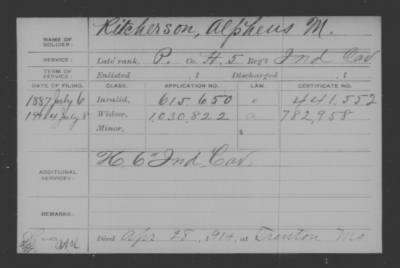 NAME OF SOLDIER: Kitcherson, Alpheus M.
SERVICE: Late rank, P. Co. H, 5 Reg't Ind Cav
TERM OF SERVICE: Enlisted , 1 Discharged , 1
DATE OF FILING. CLASS. APPLICATION NO. LAW. CERTIFICATE NO.
1887 July 6 Invalid, 615,650 441,552
1914 July 8 Widow, 1,030,822 782,958
Minor,
ADDITIONAL SERVICES: H. 6" Ind Cav.
REMARKS:
Died Apr 28, 1914, at Trenton Mo